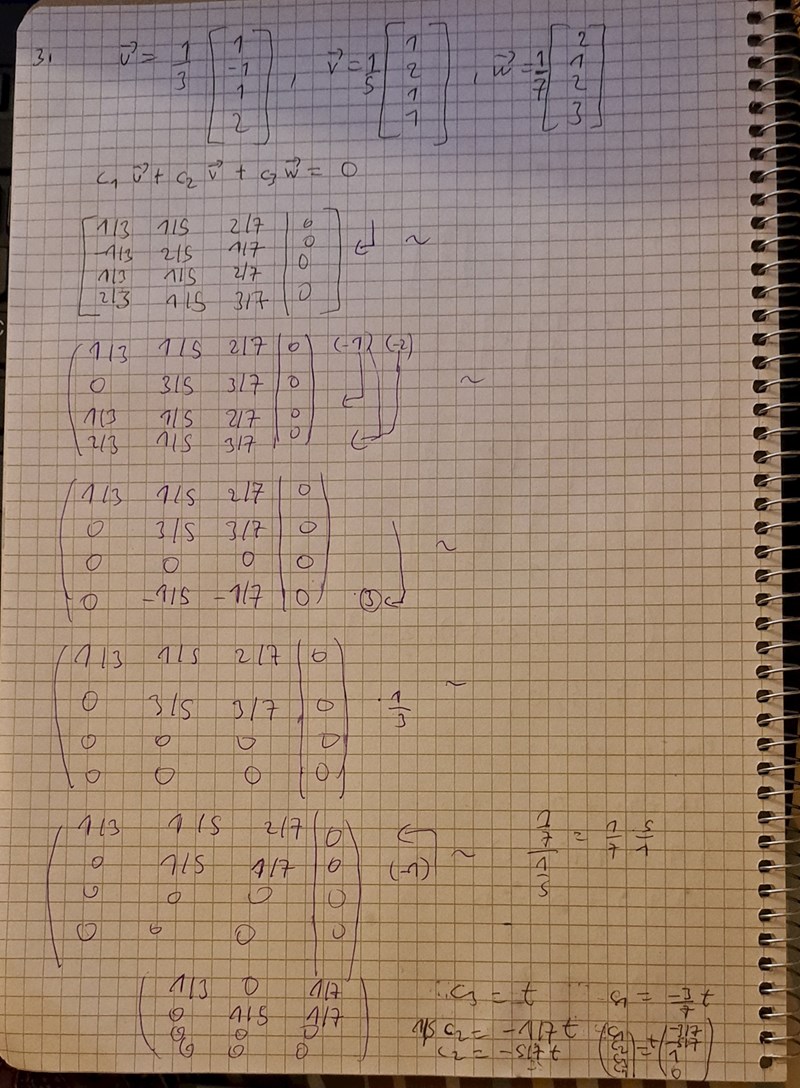 3. v⃗ = 1/3 [1 -1 1 2], v⃗ = 1/5 [1 2 1 1], w⃗ = 1/7 [2 1 2 3]
c₁ v⃗ + c₂ v⃗ + c₃ w⃗ = 0
1/3 1/5 2/7 | 0
-1/3 2/5 1/7 | 0 ~
1/3 1/5 2/7 | 0
2/3 1/5 3/7 | 0
1/3 1/5 2/7 | 0 (-1) (-2)
0 3/5 3/7 | 0 ~
1/3 1/5 2/7 | 0
2/3 1/5 3/7 | 0
1/3 1/5 2/7 | 0
0 3/5 3/7 | 0 ~
0 0 0 | 0
0 -1/5 -1/7 | 0 ·(3)
1/3 1/5 2/7 | 0 ~
0 3/5 3/7 | 0 · 1/3
0 0 0 | 0
0 0 0 | 0
1/3 1/5 2/7 | 0
0 1/5 1/7 | 0 (-1) ~ (1/7)/(1/5) = 1/7 5/1
0 0 0 | 0
0 0 0 | 0
1/3 0 1/7 c₃ = t c₁ = -3/7 t
0 1/5 1/7 1/5 c₂ = -1/7 t
0 0 0 c₂ = -5/7 t
0 0 0